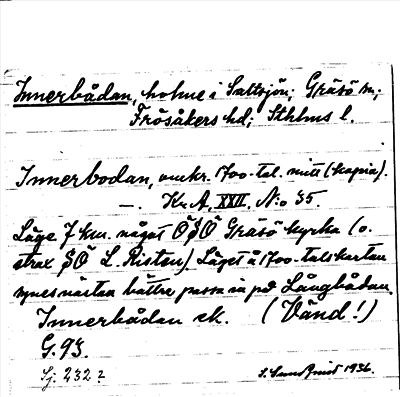 Innerbådan, holme i Saltsjön; Gräsö sn;
Frösåkers hd; Sthlms l.
Innerbodan, omkr. 1700-tal. mitt (kopia).
—. Kr. A. XXII. N:o 35
Läge 7 km. något ÖSÖ Gräsö kyrka (o.
strax SÖ L. Risten). Läget å 1700-talskartan
synes nästan bättre passa in på Långbådan.
Innerbådan ek. (Vänd!)
G. 93.
Sj: 232?
1936.